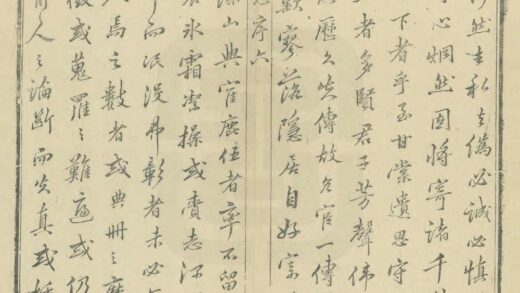 然去私去偽必誠必慎
心炯然固將寄諸千
下者乎至甘棠遺思守
者多賢君子芳聲偉
歷久失傳故名宦一傳
寥落隱居自好
序六
山與寉鹿伍者率不留
冰霜潔操或賫志
而泯沒弗彰者未必
焉之數者或典冊之
或蒐羅之難遍或仍
人之論斷而失真或